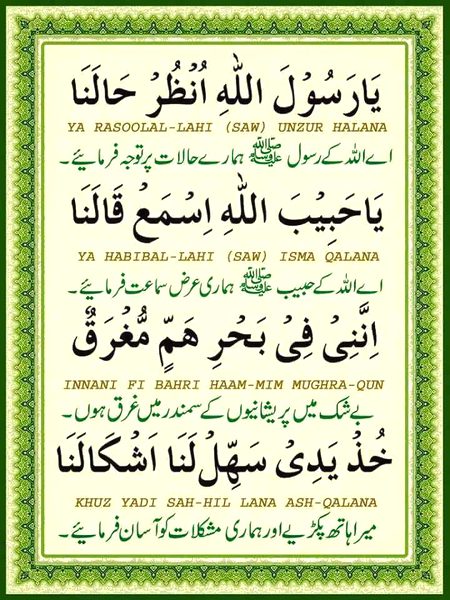 يَارَسُوْلَ اللهِ اُنْظُرْ حَالَنَا
YA RASOOLAL-LAHI (SAW) UNZUR HALANA
اے اللہ کے رسول ﷺ ہمارے حالات پر توجہ فرمائیے۔
يَاحَبِيْبَ اللهِ اِسْمَعْ قَالَنَا
YA HABIBAL-LAHI (SAW) ISMA QALANA
اے اللہ کے حبیب ﷺ ہماری عرض سماعت فرمائیے۔
اِنَّنِيْ فِيْ بَحْرِ هَمٍّ مُّغْرَقٌ
INNANI FI BAHRI HAAM-MIM MUGHRA-QUN
بے شک میں پریشانیوں کے سمندر میں غرق ہوں۔
خُذْ يَدِيْ سَهِّلْ لَنَا اَشْكَالَنَا
KHUZ YADI SAH-HIL LANA ASH-QALANA
میرا ہاتھ پکڑیے اور ہماری مشکلات کو آسان فرمائیے۔